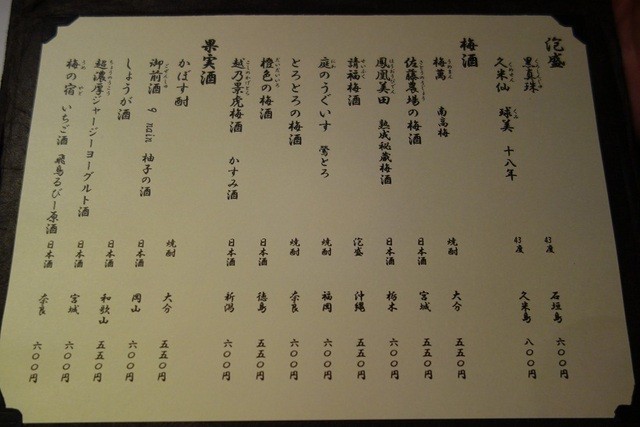 泡盛
黒真珠 43度 石垣島 六〇〇円
久米仙 球美 十八年 43度 久米島 八〇〇円
梅酒
梅萬 南高梅 焼酎 大分 五五〇円
佐藤農場の梅酒 日本酒 宮城 五五〇円
鳳凰美田 熟成秘蔵梅酒 日本酒 栃木 六〇〇円
請福梅酒 泡盛 沖縄 五五〇円
庭のうぐいす 鶯とろ 焼酎 福岡 六〇〇円
とろとろの梅酒 焼酎 奈良 六〇〇円
橙色の梅酒 日本酒 徳島 五五〇円
越乃景虎梅酒 かすみ酒 日本酒 新潟 六〇〇円
果実酒
かぼす酎 焼酎 大分 五五〇円
御前酒 9 nain 柚子の酒 日本酒 岡山 六〇〇円
しょうが酒 日本酒 和歌山 五五〇円
超濃厚ジャージーヨーグルト酒 日本酒 宮城 六〇〇円
梅の宿 いちご酒 飛鳥るびー原酒 日本酒 奈良 六〇〇円